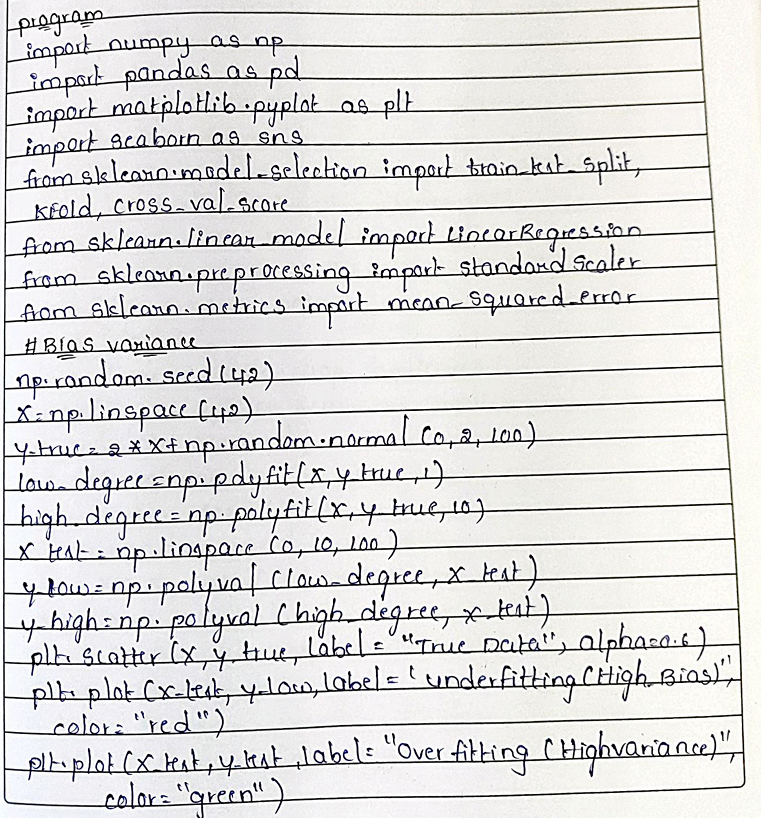 program
import numpy as np
import pandas as pd
import matplotlib.pyplot as plt
import seaborn as sns
from sklearn.model_selection import train_test_split,
KFold, cross_val_score
from sklearn.linear_model import LinearRegression
from sklearn.preprocessing import standard scaler
from sklearn.metrics import mean_squared_error
# Bias variance
np.random.seed(42)
x=np.linspace(42)
y-true=2*x+np.random.normal(0,2,100)
low_degree=np.polyfit(x,y_true,1)
high_degree=np.polyfit(x,y_true,10)
x test=np.linspace(0,10,100)
y-low=np.polyval(low_degree,x_test)
y-high=np.polyval(high_degree,x_test)
plt.scatter(x,y_true,label="True Data",alpha=0.6)
plt.plot(x-test,y-low,label='underfitting(High Bias)",
color="red")
plt.plot(x_test,y_test,label="Over fitting (Highvariance)",
color="green")